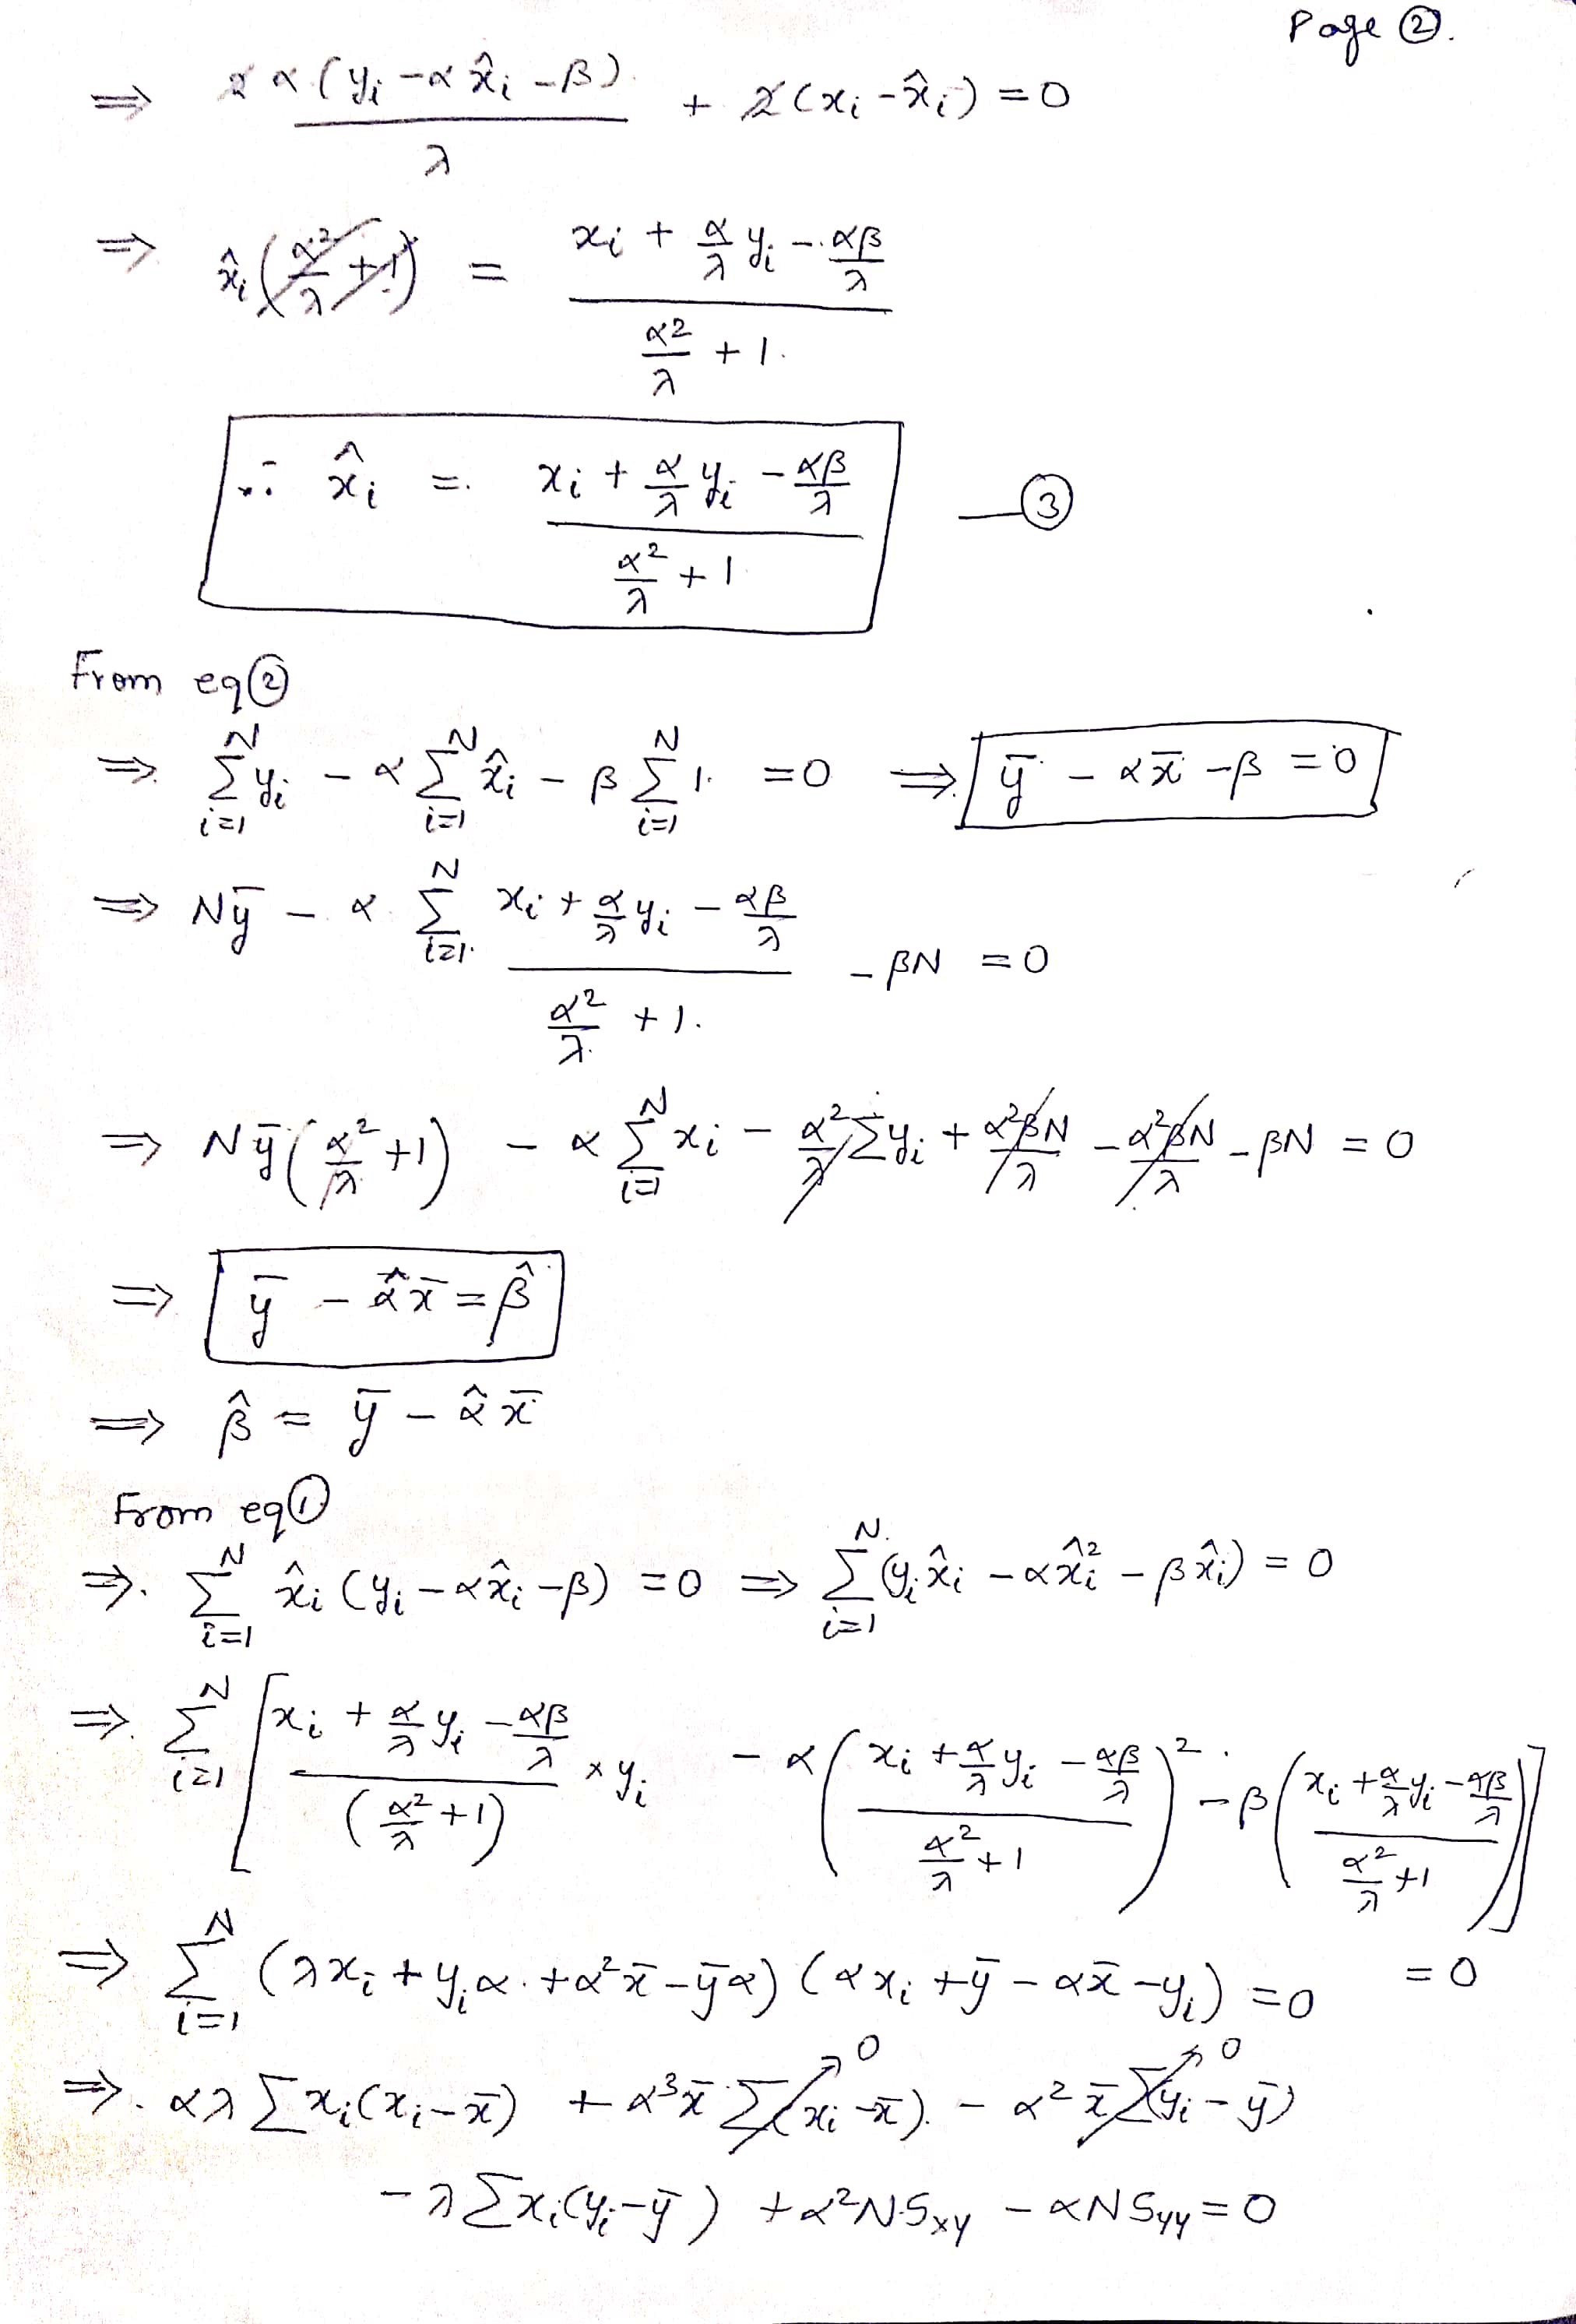 Page ②.
⇒ 2α(yᵢ − αx̂ᵢ − β)/λ + 2(xᵢ − x̂ᵢ) = 0
⇒ x̂ᵢ(α²/λ + 1) = (xᵢ + (α/λ)yᵢ − αβ/λ)/(α²/λ + 1)
∴ x̂ᵢ = (xᵢ + (α/λ)yᵢ − αβ/λ)/(α²/λ + 1) —③
From eq②
⇒ Σᵢ₌₁ᴺ yᵢ − α Σᵢ₌₁ᴺ x̂ᵢ − β Σᵢ₌₁ᴺ 1 = 0 ⇒ ȳ − αx̄ − β = 0
⇒ Nȳ − α Σᵢ₌₁ᴺ (xᵢ + (α/λ)yᵢ − αβ/λ)/(α²/λ + 1) − βN = 0
⇒ Nȳ(α²/λ + 1) − α Σᵢ₌₁ᴺ xᵢ − (α²/λ)Σyᵢ + α²βN/λ − α²βN/λ − βN = 0
⇒ ȳ − α̂x̄ = β̂
⇒ β̂ = ȳ − α̂x̄
From eq①
⇒ Σᵢ₌₁ᴺ x̂ᵢ(yᵢ − αx̂ᵢ − β) = 0 ⇒ Σᵢ₌₁ᴺ (yᵢx̂ᵢ − αx̂ᵢ² − βx̂ᵢ) = 0
⇒ Σᵢ₌₁ᴺ [(xᵢ + (α/λ)yᵢ − αβ/λ)/(α²/λ + 1) × yᵢ − α((xᵢ + (α/λ)yᵢ − αβ/λ)/(α²/λ + 1))² − β((xᵢ + (α/λ)yᵢ − αβ/λ)/(α²/λ + 1))] = 0
⇒ Σᵢ₌₁ᴺ (λxᵢ + yᵢα + α²x̄ − ȳα)(αxᵢ + ȳ − αx̄ − yᵢ) = 0
⇒ αλ Σxᵢ(xᵢ − x̄) + α³x̄ Σ(xᵢ − x̄) →0 − α²x̄ Σ(yᵢ − ȳ) →0
− λ Σxᵢ(yᵢ − ȳ) + α²N·Sxy − αN Syy = 0